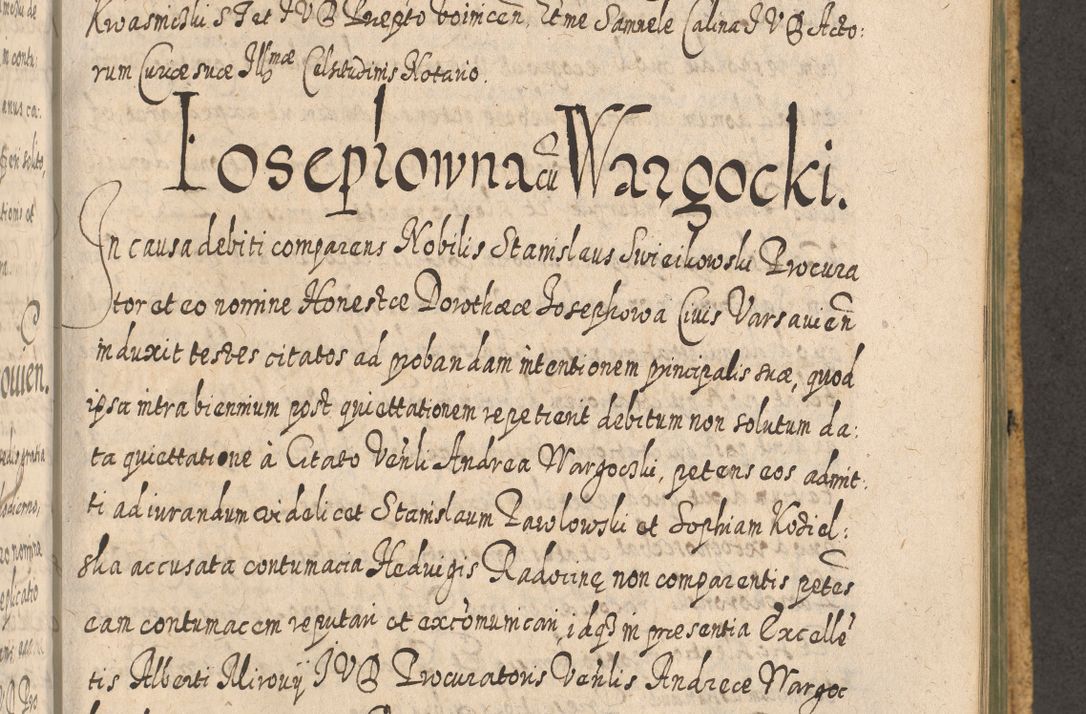 Kwasnicki s Fct I V D Præpto Voinicen, et me Samuele Calina I V D Acto:
rum Curiæ suæ Illmæ Celsitudinis Notario.
Iosephowna cū Wargocki.
In causa debiti comparens Nobilis Stanislaus Swieikowski Procura
tor et eo nomine Honestæ Dorothææ Iosephowa Civis Varsavien̄
induxit testes citatos ad probandam intentionem principalis suæ, quod
ipsa intra biennium post quiettationem repetierit debitum non solutum da:
ta quiettatione à Citato Venli Andrea Wargocki, petens eos admit:
ti ad iurandum videlicet Stanislaum Pawlowski et Sophiam Koziel:
ska accusata contumacia Hedvegis Radocinę non comparentis petēs
eam contumacem reputari et excōmunicari, idq3 in præsentia Excellē
tis Alberti Mirowij I V D Procuratoris Venlis Andreæ Wargoc